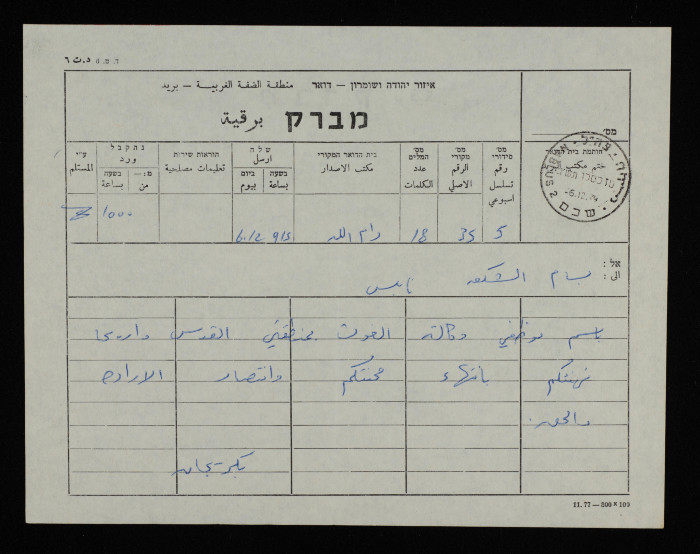 איזור יהודה ושומרון — דואר منطقة الضفة الغربية — بريد
מברק برقية
מס׳
חותמת בית הדואר
ختم مكتب
שכם
-6.12.79
NABLUS 2
מס׳ סידורי
رقم تسلسل اسبوعي
מס׳ מקורי
الرقم الاصلي
מס׳ המלים
عدد الكلمات
בית הדואר המקורי
مكتب الاصدار
שלה
ارسل
בשעה
بساعة
ביום
بيوم
הוראות שירות
تعليمات مصلحية
נתקבל
ورد
מ:—
من
בשעה
بساعة
ע״י
المستلم
5 35 18 رام الله 915 6.12 1000
אל :
الى :
بسام الشكعه نابلس
باسم موظفي وكالة الغوث بمنطقتي القدس واريحا
نهنئكم بانتهاء محنتكم وانتصار الارادة
والحق.
11.77—300×100